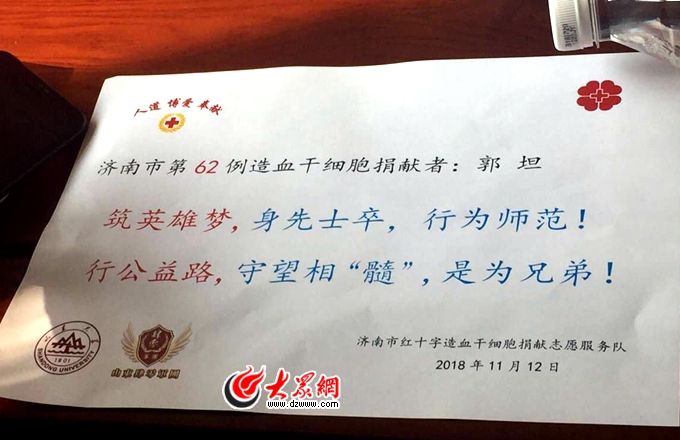 人道 博爱 奉献
济南市第62例造血干细胞捐献者：郭 坦
筑英雄梦，身先士卒，行为师范！
行公益路，守望相“髓”，是为兄弟！
济南市红十字造血干细胞捐献志愿服务队
2018年11月12日
山东大学
1901
SHANDONG UNIVERSITY
大众網
www.dzwww.com